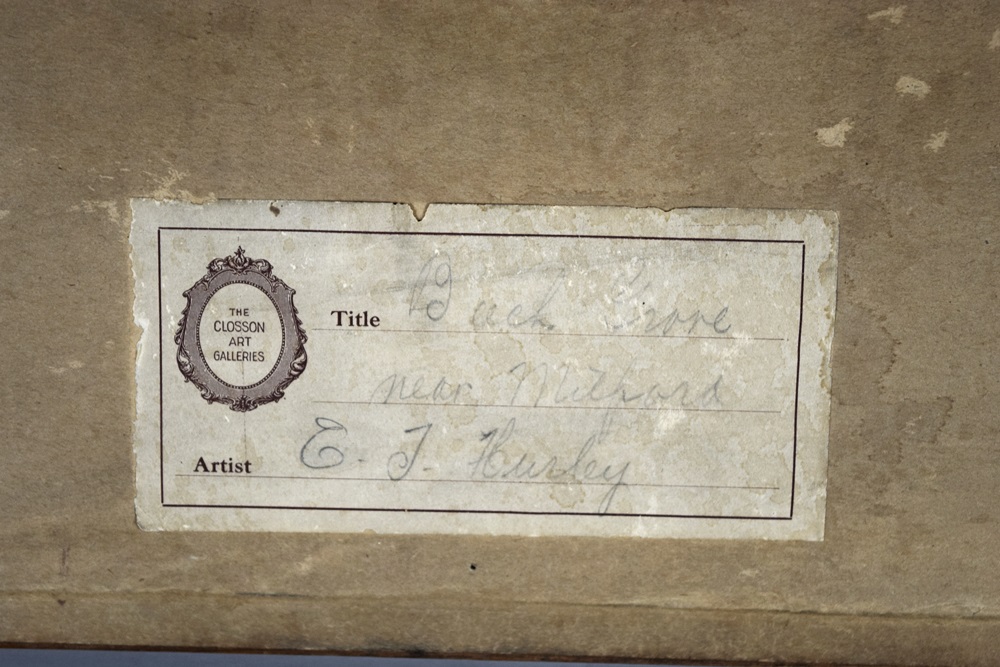 THE
CLOSSON
ART
GALLERIES
Title Beech Grove
near Milford
Artist E. T. Hurley